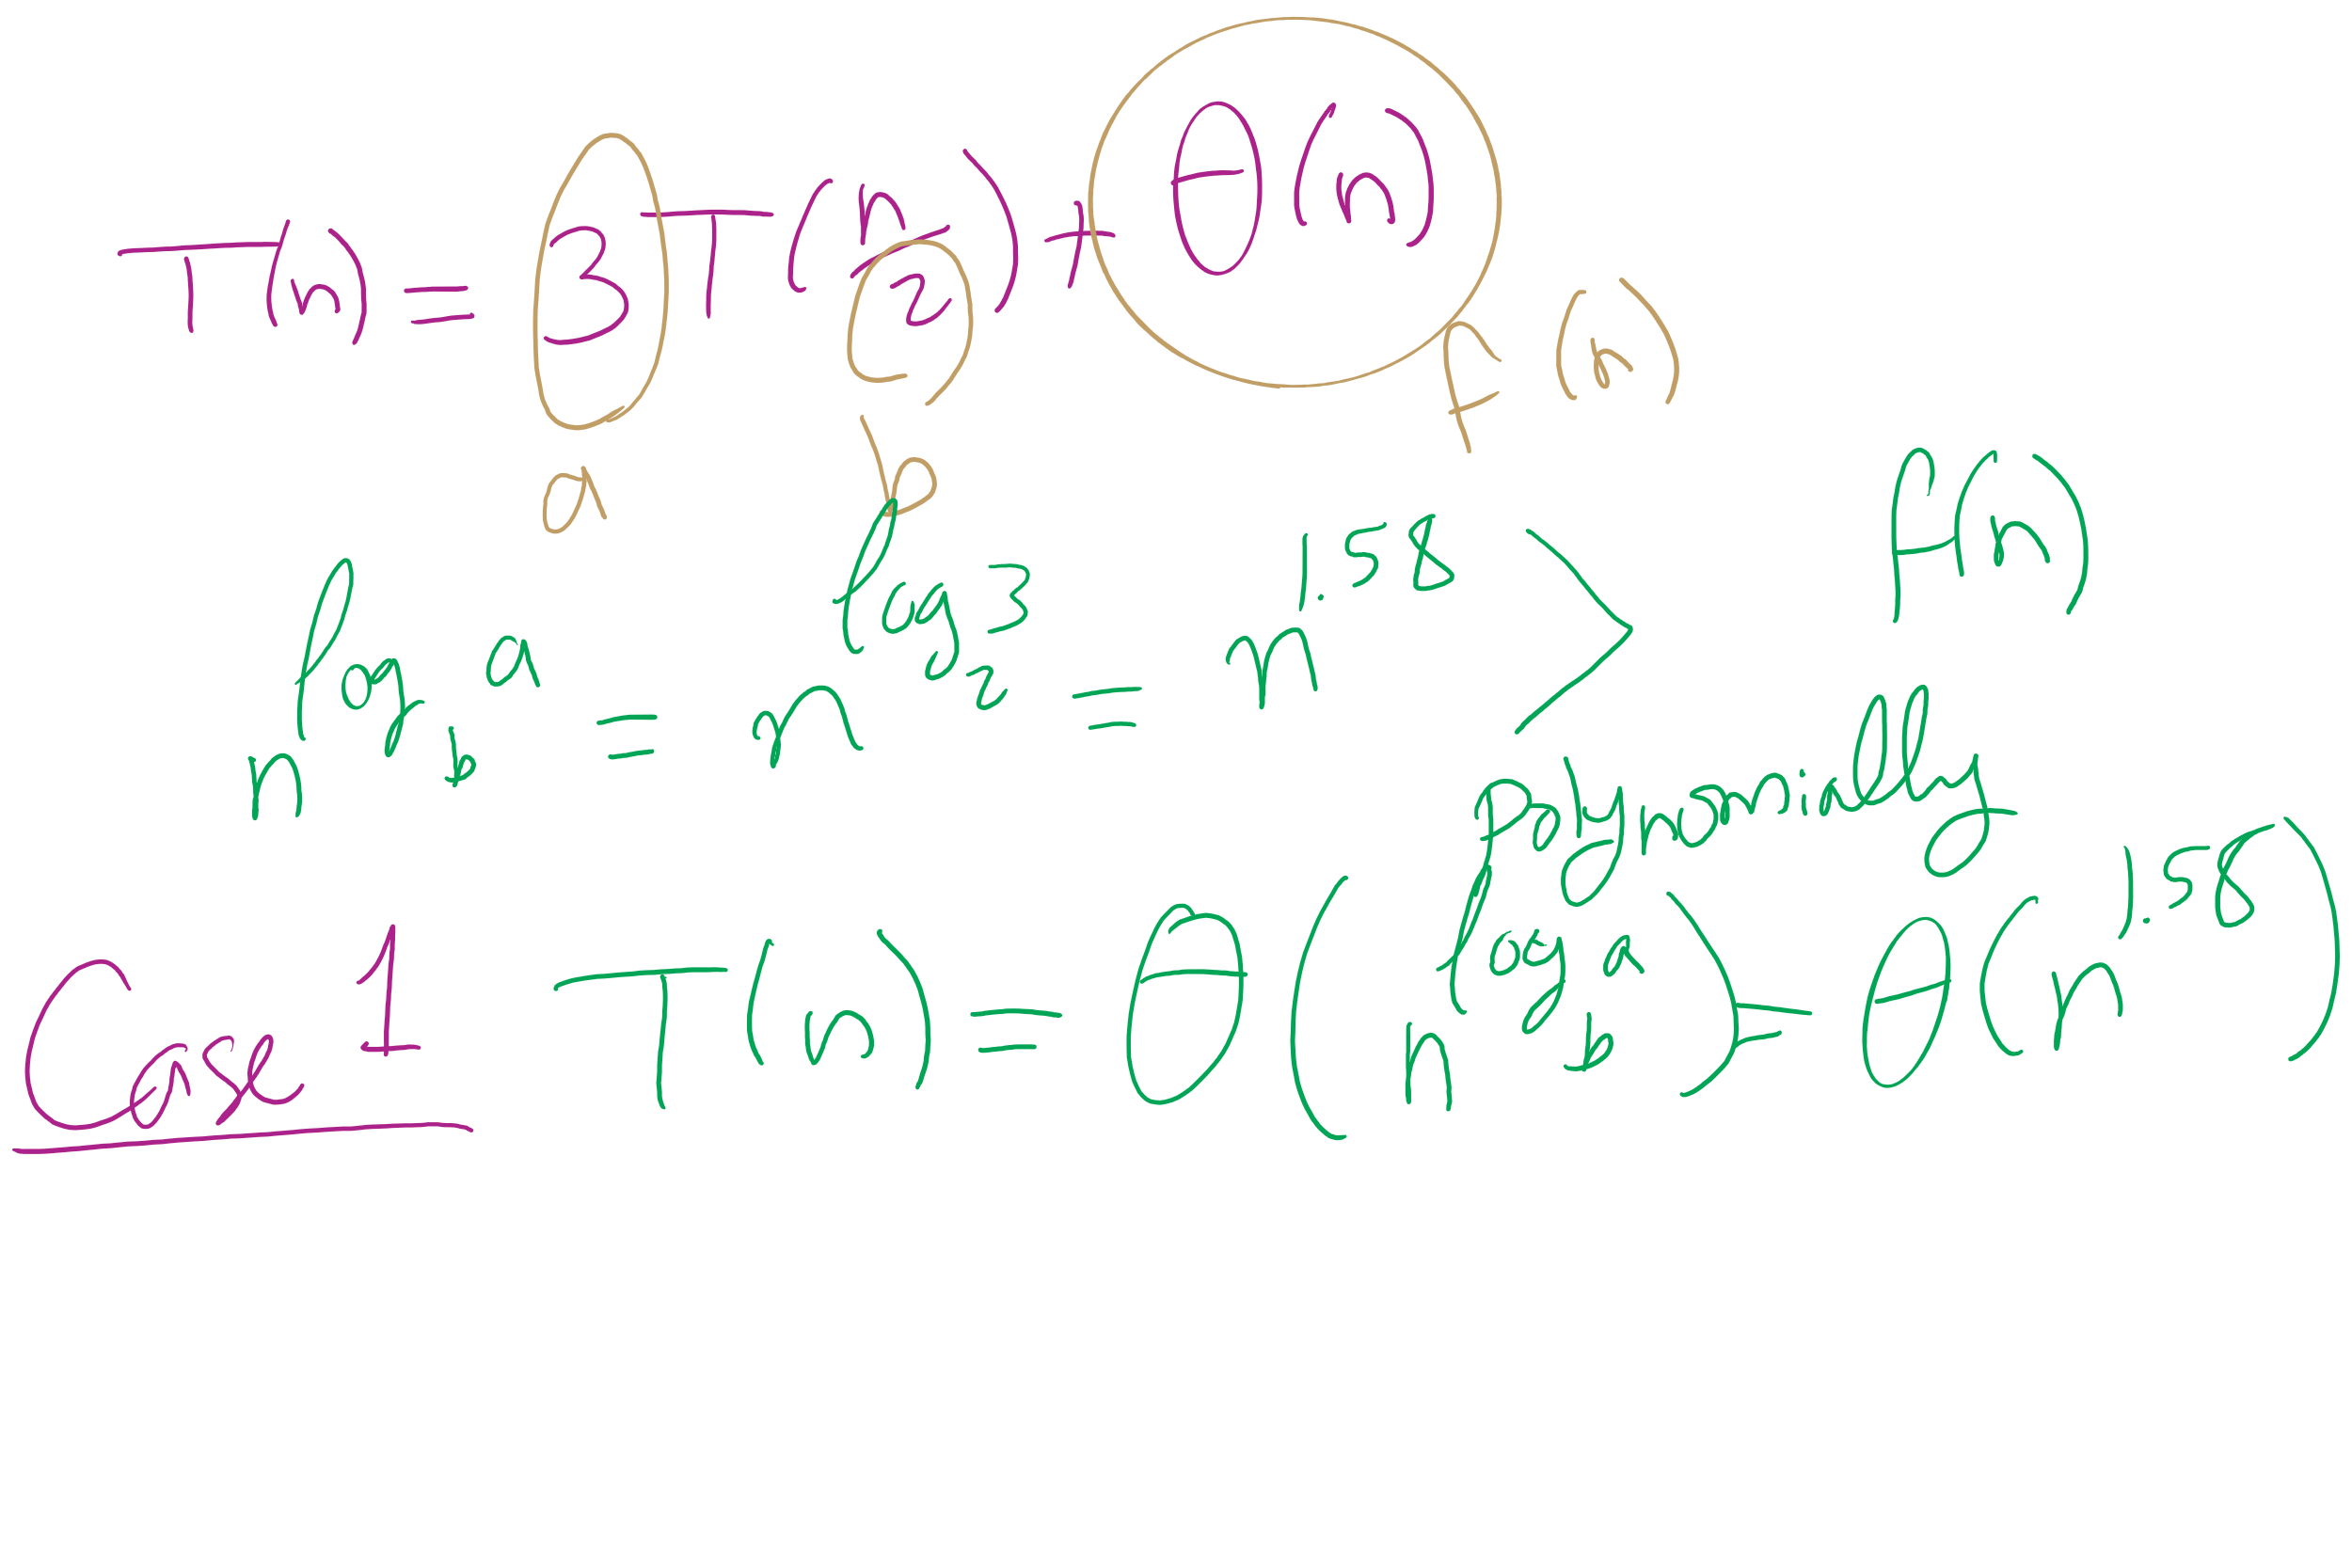 T(n) = 3T(n/2) + θ(n)
a b f(n)
n^log_b a = n^log_2 3 = n^1.58 > f(n)
polynomially
Case 1 T(n) = θ(n^log_b a) = θ(n^1.58)